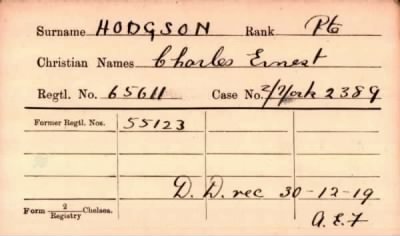 Surname HODGSON Rank Pte
Christian Names Charles Ernest
Regtl. No. 65611 Case No. 2/York 2389
Former Regtl. Nos. 55123
D. D. rec 30-12-19
Form 2/Registry Chelsea. A.E.F